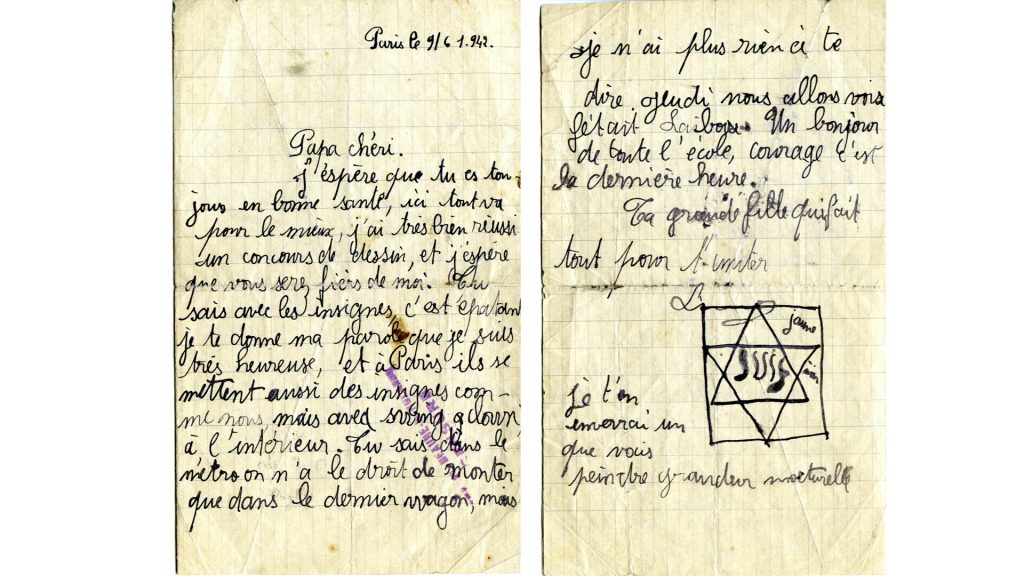 Paris le 9/6 1.942.
Papa chéri.
J'espère que tu es tou-
jous en bonne santé, ici tout va
pour le mieux, j'ai très bien réussi
un concours de dessin, et j'espère
que vous serez fièrs de moi. Tu
sais avec les insignes, c'est épatan
je te donne ma parole que je suis
très heureuse, et à Paris ils se
mettent aussi des insignes com-
me nous, mais avec swing
à l'intérieur. Tu sais dans le
métro on n'a le droit de monter
que dans le dernier wagon, mais
BEAUNE
je n'ai plus rien à te
dire. Jeudi nous allons voir
Un bonjour
de toute l'école, courage c'est
la dernière heure.
Ta grande fille qui fait
tout pour t'imiter
jaune
JUIF
noir
Je t'en
enverrai un
que vais
peindre grandeur